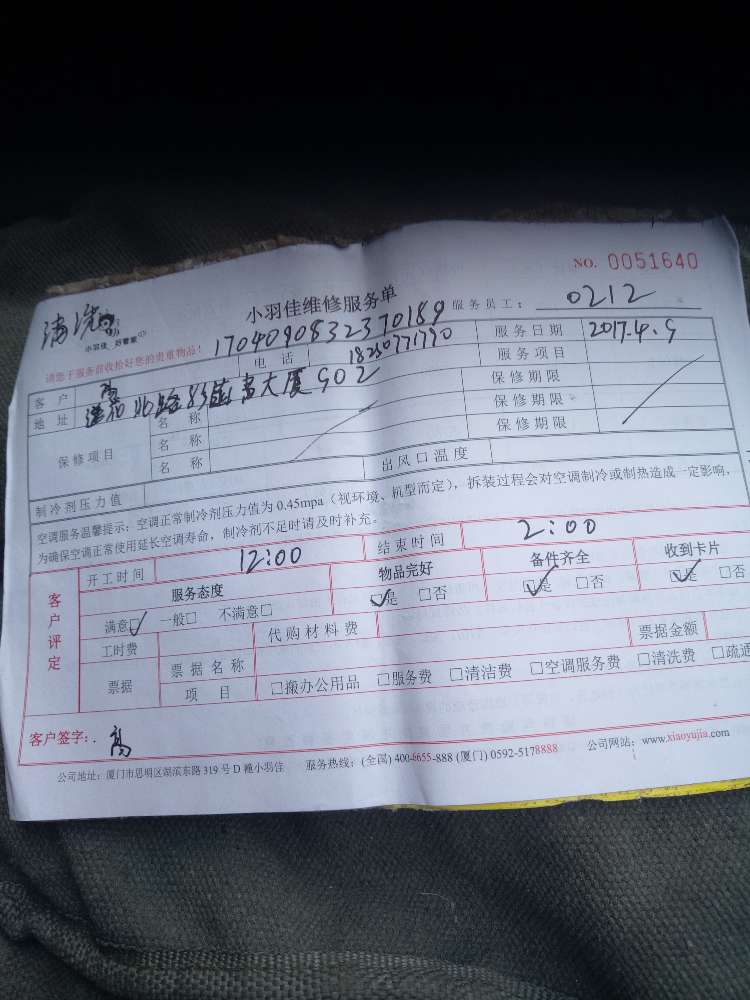 NO. 0051640
清洗
小羽佳 好管家
小羽佳维修服务单
服务员工: 0212
请您于服务前收拾好您的贵重物品!
1704090832370189
客户 高 电话 18250771790 服务日期 2017.4.9
地址 北路 大厦902 服务项目
保修项目 名称 保修期限
名称 保修期限
名称 保修期限
制冷剂压力值 出风口温度
空调服务温馨提示: 空调正常制冷剂压力值为 0.45mpa (视环境、机型而定), 拆装过程会对空调制冷或制热造成一定影响,
为确保空调正常使用延长空调寿命, 制冷剂不足时请及时补充。
客户评定
开工时间 12:00 结束时间 2:00
服务态度 物品完好 备件齐全 收到卡片
满意☑ 一般□ 不满意□ ☑是 □否 ☑是 □否 ☑是 □否
工时费 代购材料费
票据 票据名称 票据金额
项目 □搬办公用品 □服务费 □清洁费 □空调服务费 □清洗费 □疏通
客户签字: 高
公司地址: 厦门市思明区湖滨东路 319 号 D 幢小羽佳 服务热线: (全国) 400-6655-888 (厦门) 0592-5178888 公司网站: www.xiaoyujia.com